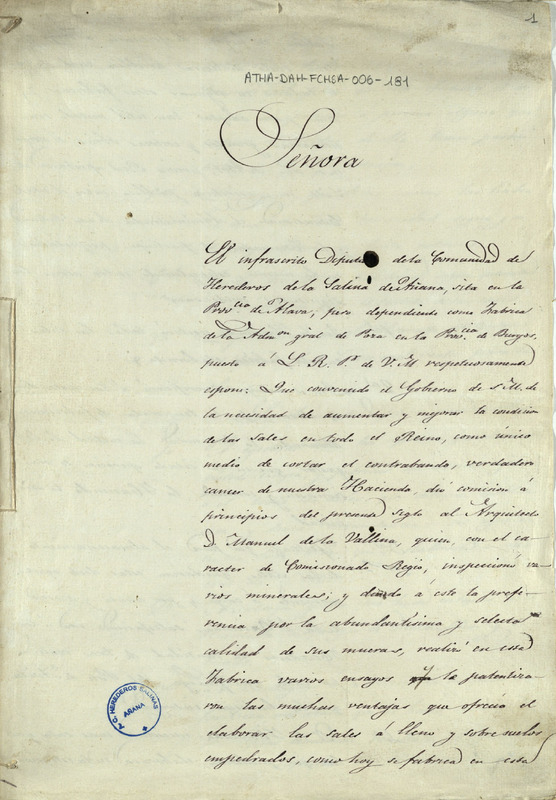 1
ATHA-DAH-FCHSA-006-181
Señora
El infrascrito Diputado de la Comunidad de
Herederos de la Salina de Añana, sita en la
Prov.cia de Alava, pero dependiendo como Fabrica
de la Adm.on gral de Poza en la Prov.cia de Burgos,
puesto á L. R. P.s de V. M respetuosamente
espone: Que convencido el Gobierno de S. M. de
la necesidad de aumentar y mejorar la condicion
de las sales en todo el Reino, como único
medio de cortar el contrabando, verdadero
cáncer de nuestra Hacienda, dió comision á
principios del presente siglo al Arquitecto
D. Manuel de la Vallina, quien, con el ca-
racter de Comisionado Regio, inspeccionó va-
rios minerales; y dando á este la prefe-
rencia por la abundantísima y selecta
calidad de sus mueras, realizó en esta
Fabrica varios ensayos q.e le patentiza-
ron las muchas ventajas que ofrecia el
elaborar las sales á lleno y sobre suelos
empedrados, como hoy se fabrica en esta
C. HEREDEROS SALINAS
AÑANA